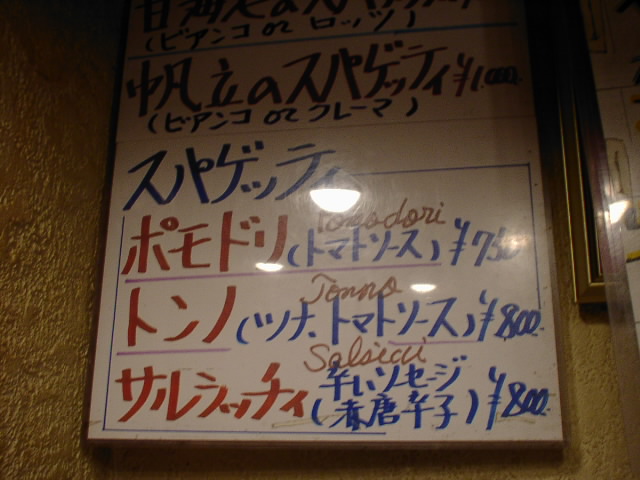 甘海老のスパゲッティ
(ビアンコ or ロッソ)
帆立のスパゲッティ ¥1,000
(ビアンコ or クレーマ)
スパゲッティ
Pomodori
ポモドリ (トマトソース) ¥750
Tonno
トンノ (ツナ、トマトソース) ¥800
Salsicci
サルシッチィ 辛いソセージ (赤唐辛子) ¥800